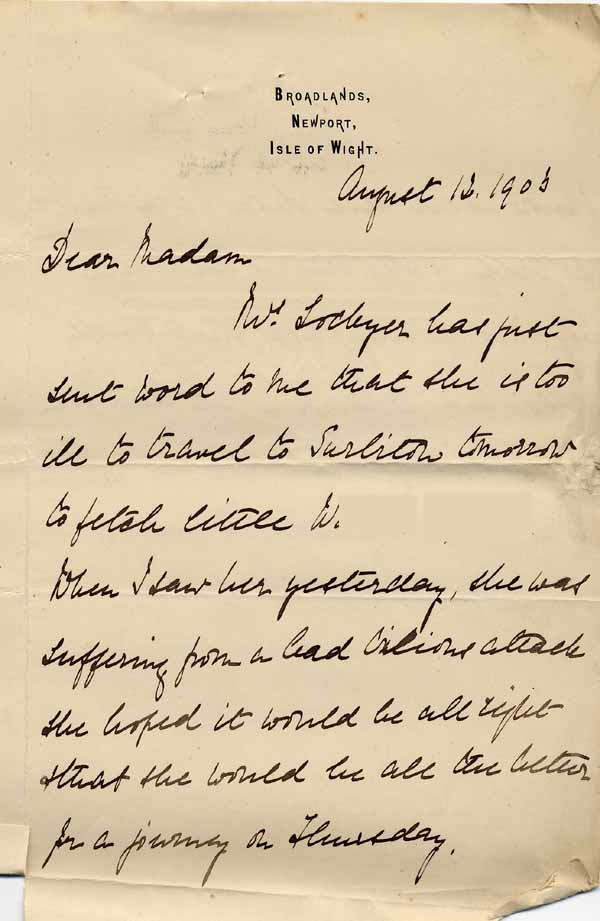 BROADLANDS,
NEWPORT,
ISLE OF WIGHT.
August 12. 1903
Dear Madam
Mrs. Lockyer has just
sent word to me that she is too
ill to travel to Surbiton tomorrow
to fetch little W.
When I saw her yesterday, she was
suffering from a bad bilious attack
she hoped it would be all right
& that she would be all the better
for a journey on Thursday.